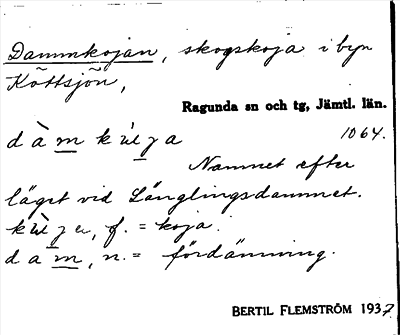 Dammkojan, skogskoja i byn
Köttsjön,
Ragunda sn och tg, Jämtl. län.
1064.
Namnet efter
läget vid Långlingsdammet.
f. = koja.
dam, n. = fördämning.
BERTIL FLEMSTRÖM 1937